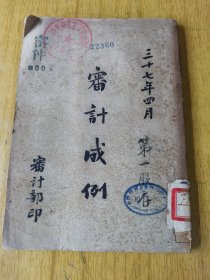 三十七年四月
第一股存
22360
審計成例
審計部印